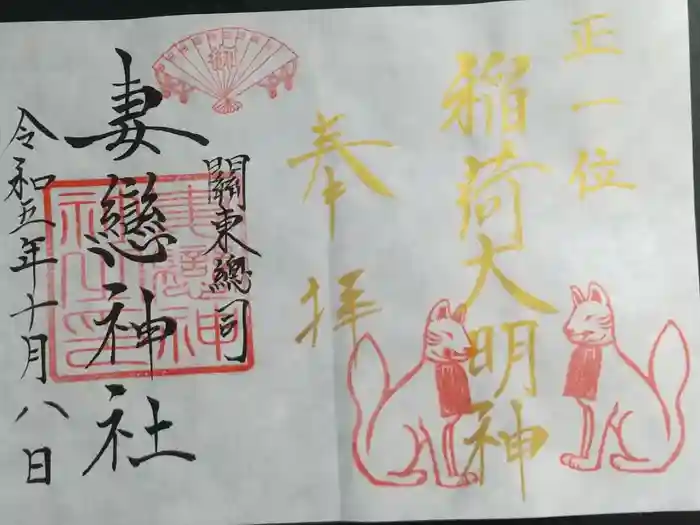 正一位
稲荷大明神
奉拝
關東總司
妻戀神社
令和五年十月八日
妻戀神社之印